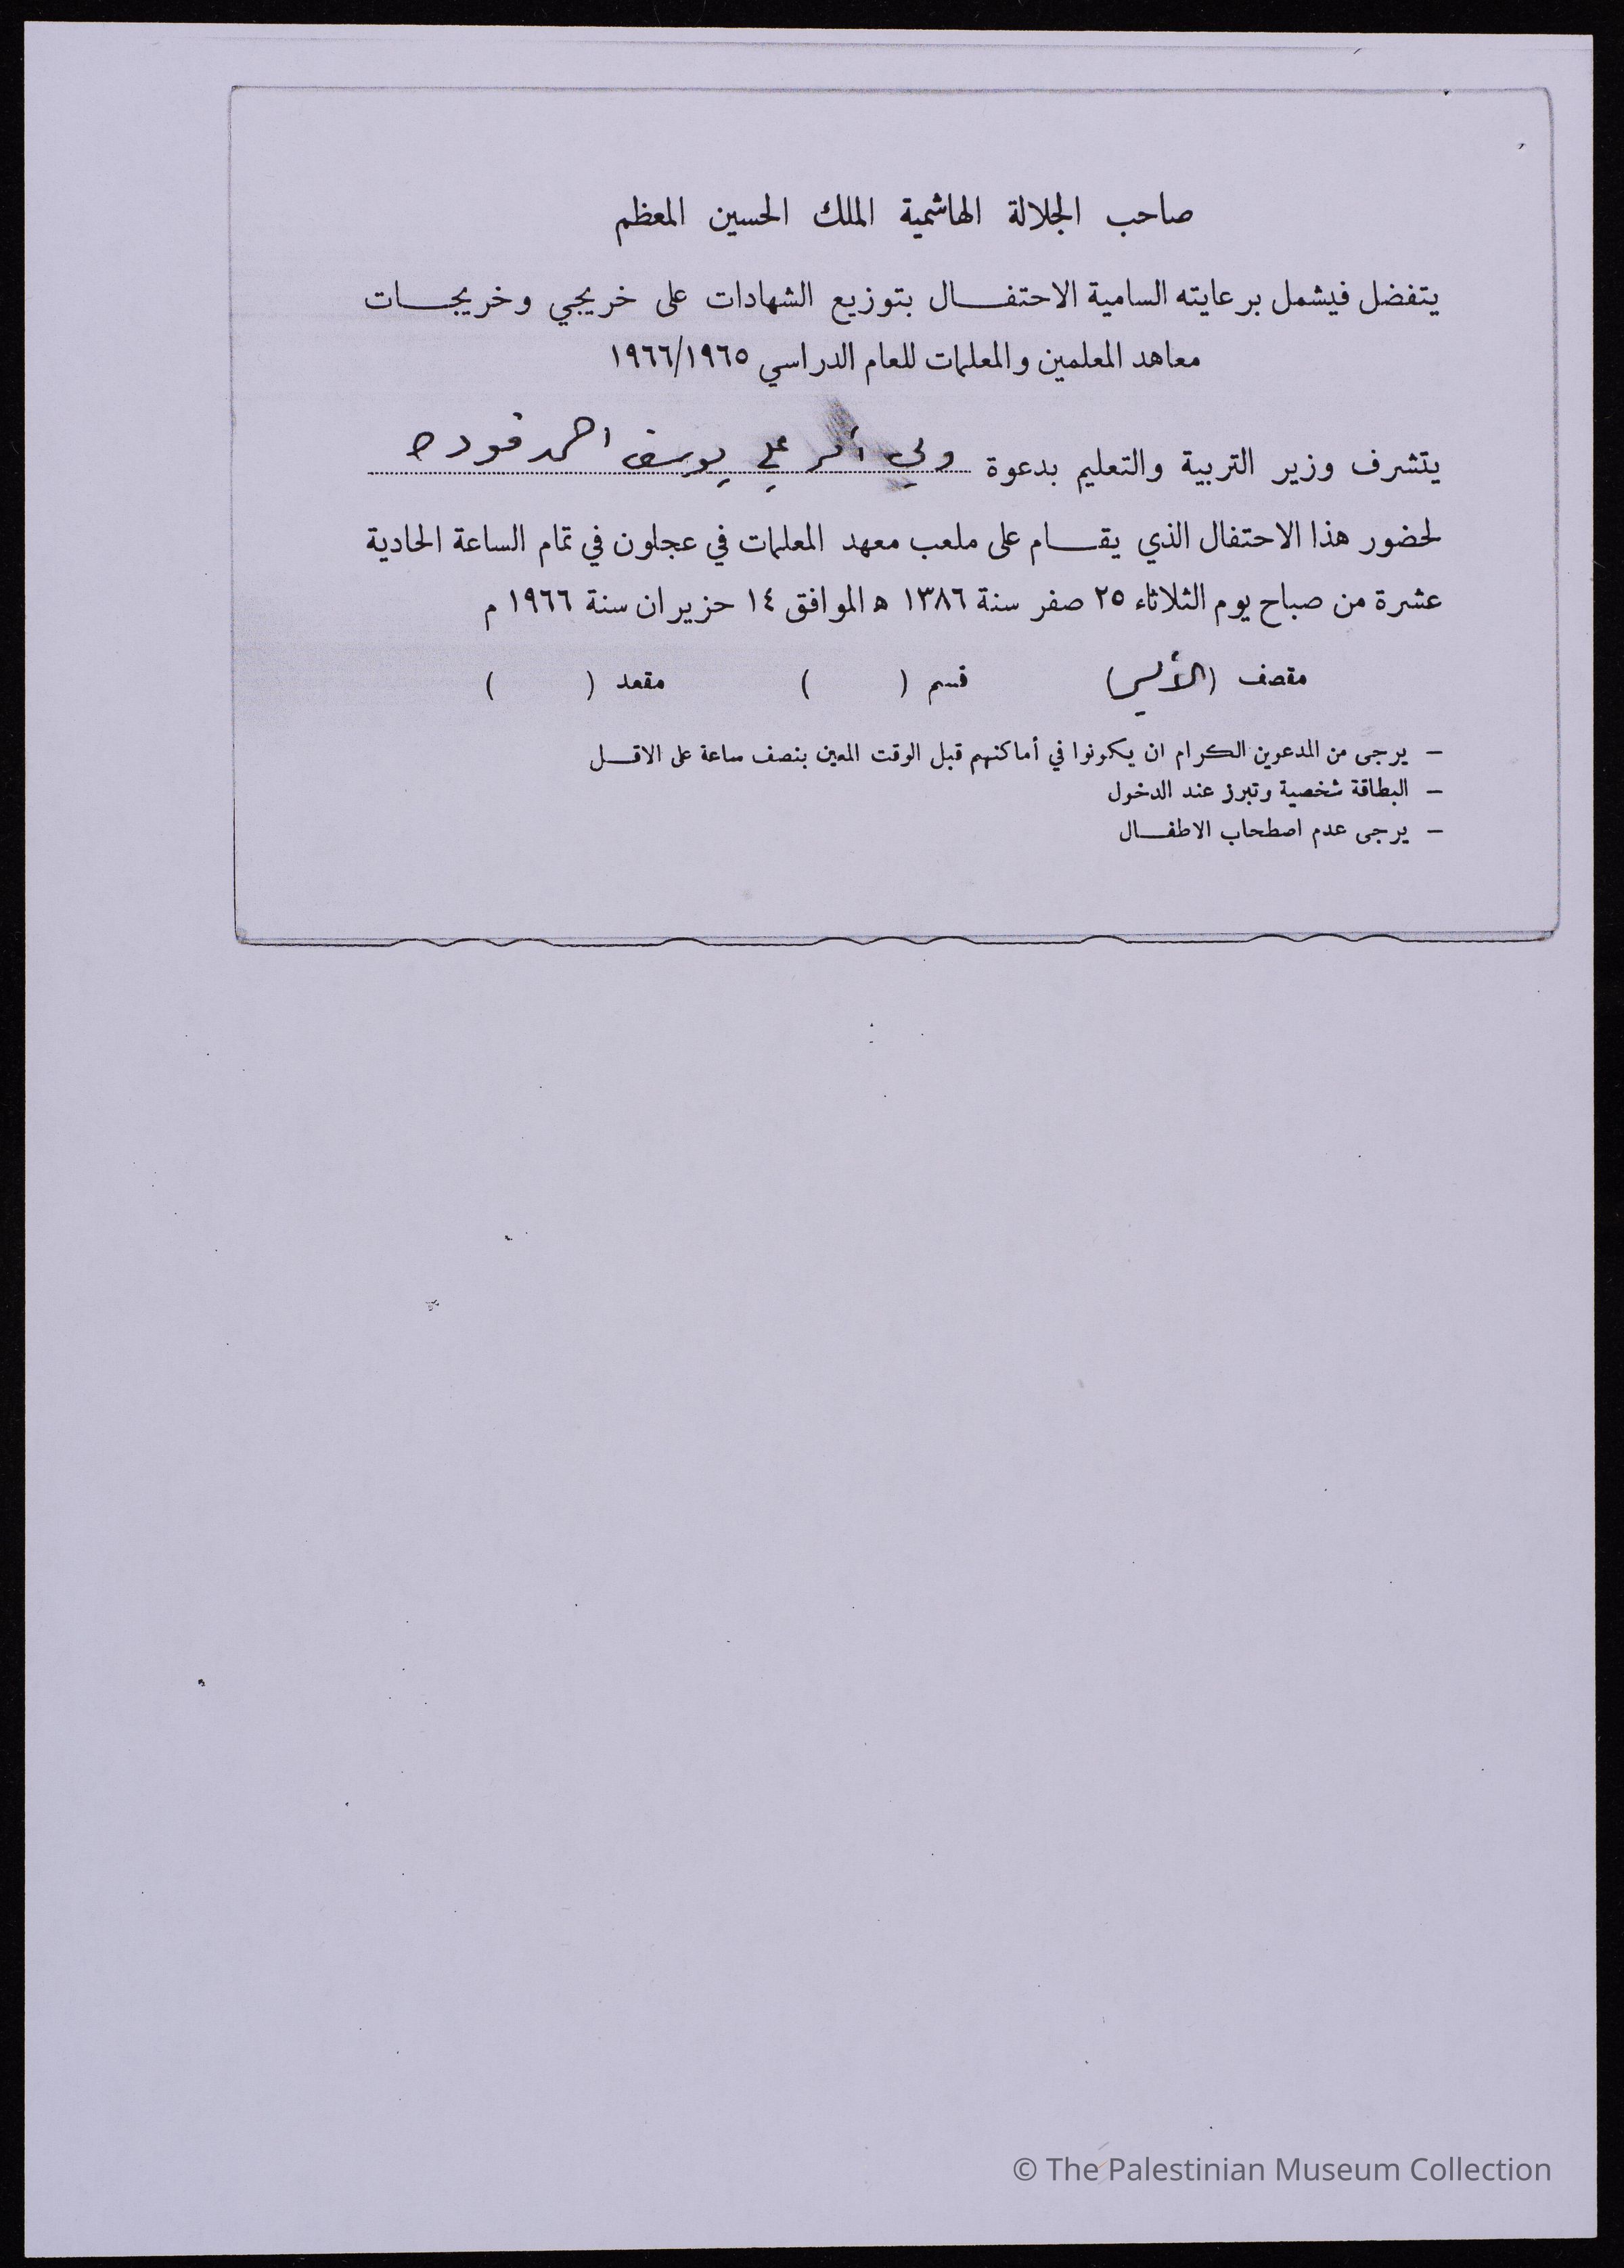 صاحب الجلالة الهاشمية الملك الحسين المعظم
يتفضل فيشمل برعايته السامية الاحتفـــال بتوزيع الشهادات على خريجي وخريجـــات
معاهد المعلمين والمعلمات للعام الدراسي ١٩٦٦/١٩٦٥
يتشرف وزير التربية والتعليم بدعوة ولي أمر علي يوسف احمد فوده
لحضور هذا الاحتفال الذي يقـــام على ملعب معهد المعلمات في عجلون في تمام الساعة الحادية
عشرة من صباح يوم الثلاثاء ٢٥ صفر سنة ١٣٨٦ ه الموافق ١٤ حزيران سنة ١٩٦٦ م
مقصف (          ) قسم (          ) مقعد (          )
– يرجى من المدعوين الكرام ان يكونوا في أماكنهم قبل الوقت المعين بنصف ساعة على الاقـــل
– البطاقة شخصية وتبرز عند الدخول
– يرجى عدم اصطحاب الاطفـــال
© The Palestinian Museum Collection